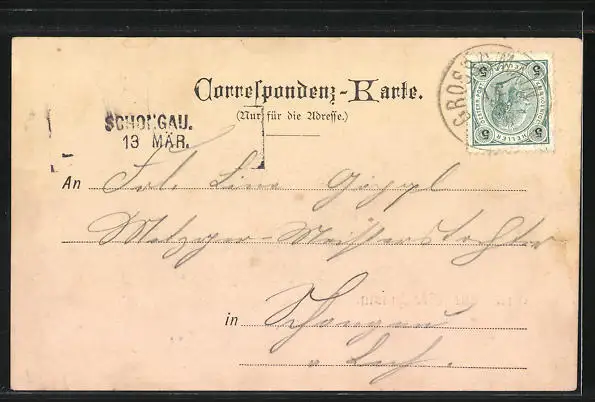 Correspondenz-Karte.
(Nur für die Adresse.)
SCHONGAU.
13 MÄR.
GROSS
5 5
HELLER
5 5
An Frl. Lina Göppl
Metzger-Meisterstochter
in Schongau
a. Lech.